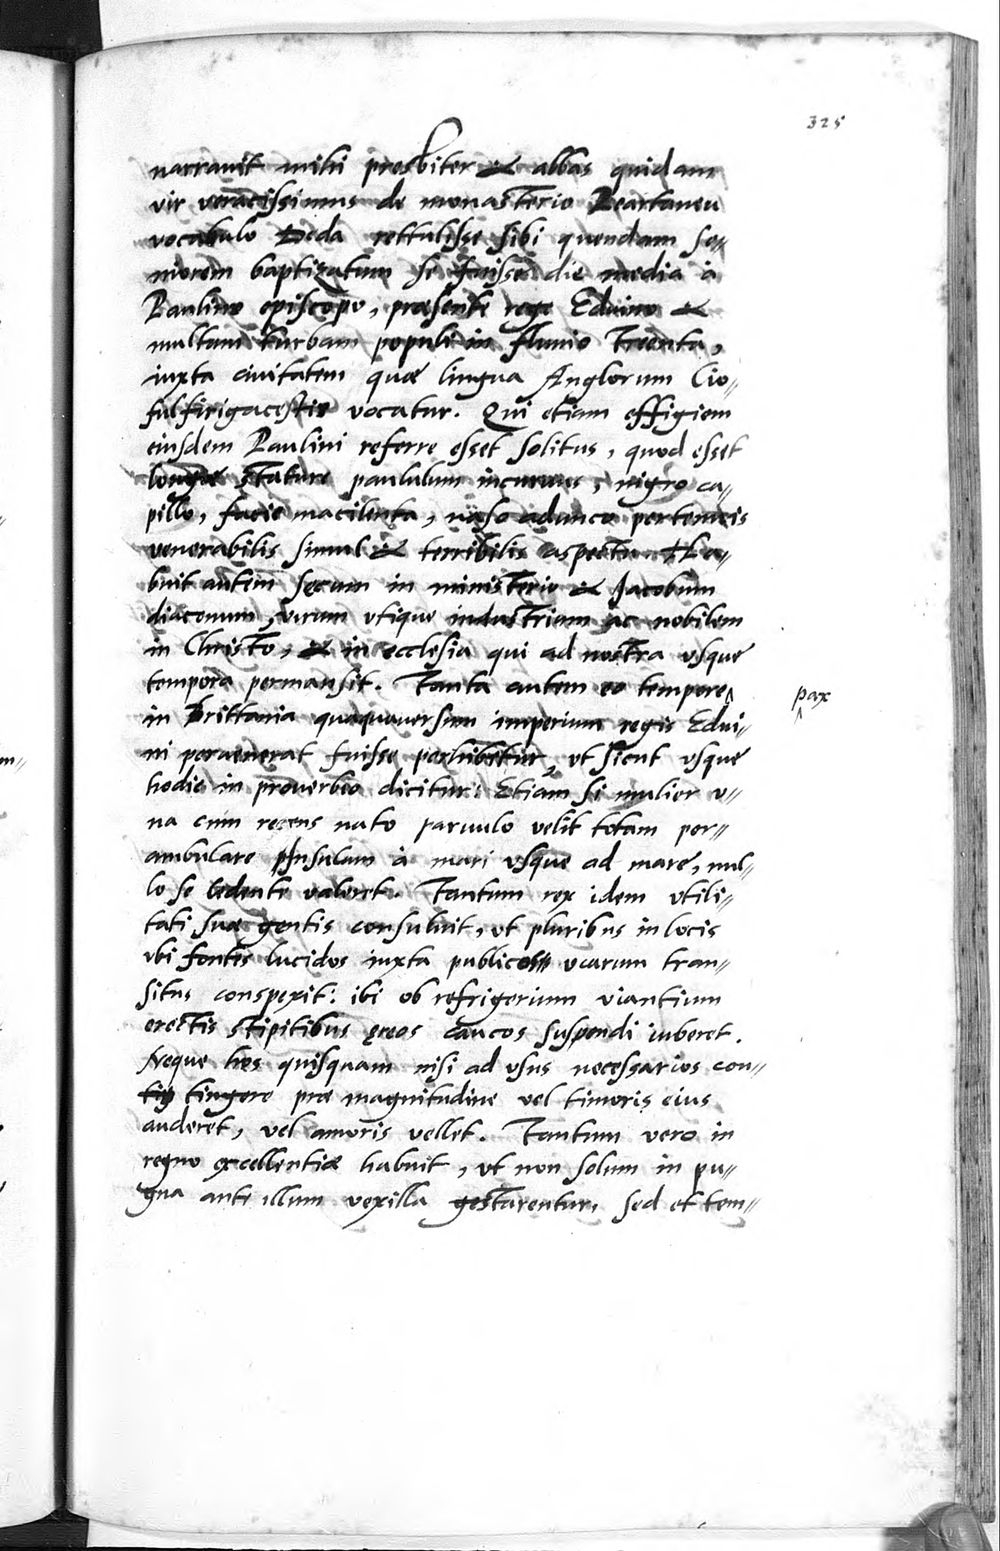 325
narrauit mihi presbiter & abbas quidam
vir veracissimus de monasterio Peartaneu
vocabulo Deda rettulisse sibi quendam se-
niorem baptizatum se fuisse die media à
Paulino episcopo, præsente rege Eduino &
multam turbam populi in fluuio Treenta,
iuxta ciuitatem quæ lingua Anglorum Cio-
fulfirigacestir vocatur. Qui etiam effigiem
eiusdem Paulini referre esset solitus, quod esset
longæ stature paululum incuruus, nigro ca-
pillo, facie macilenta, naso adunco pertenuis
venerabilis simul & terribilis aspectu. Ha-
buit autem secum in ministerio & Jacobum
diaconum, virum vtique industrium ac nobilem
in Christo, & in ecclesia qui ad nostra vsque
tempora permansit. Tanta autem eo tempore ^
^ pax
in Brittania quaquauersum imperium regis Edui-
ni peruenerat fuisse perhibetur, vt sicut vsque
hodie in prouerbio dicitur: Etiam si mulier v-
na cum recens nato paruulo velit totam per-
ambulare insulam à mari vsque ad mare, nul-
lo se ledente valeret. Tantum rex idem vtili-
tati suæ gentis consuluit, vt pluribus in locis
vbi fontes lucidos iuxta publicos vcarum tran-
situs conspexit: ibi ob refrigerium viantium
erectis stipitibus ęreos caucos suspendi iuberet.
Neque hos quisquam nisi ad vsus necessarios con-
tingere præ magnitudine vel timoris eius
auderet, vel amoris vellet. Tantum vero in
regno excellentiæ habuit, vt non solum in pu-
gna ante illum vexilla gestarentur, sed et tem-